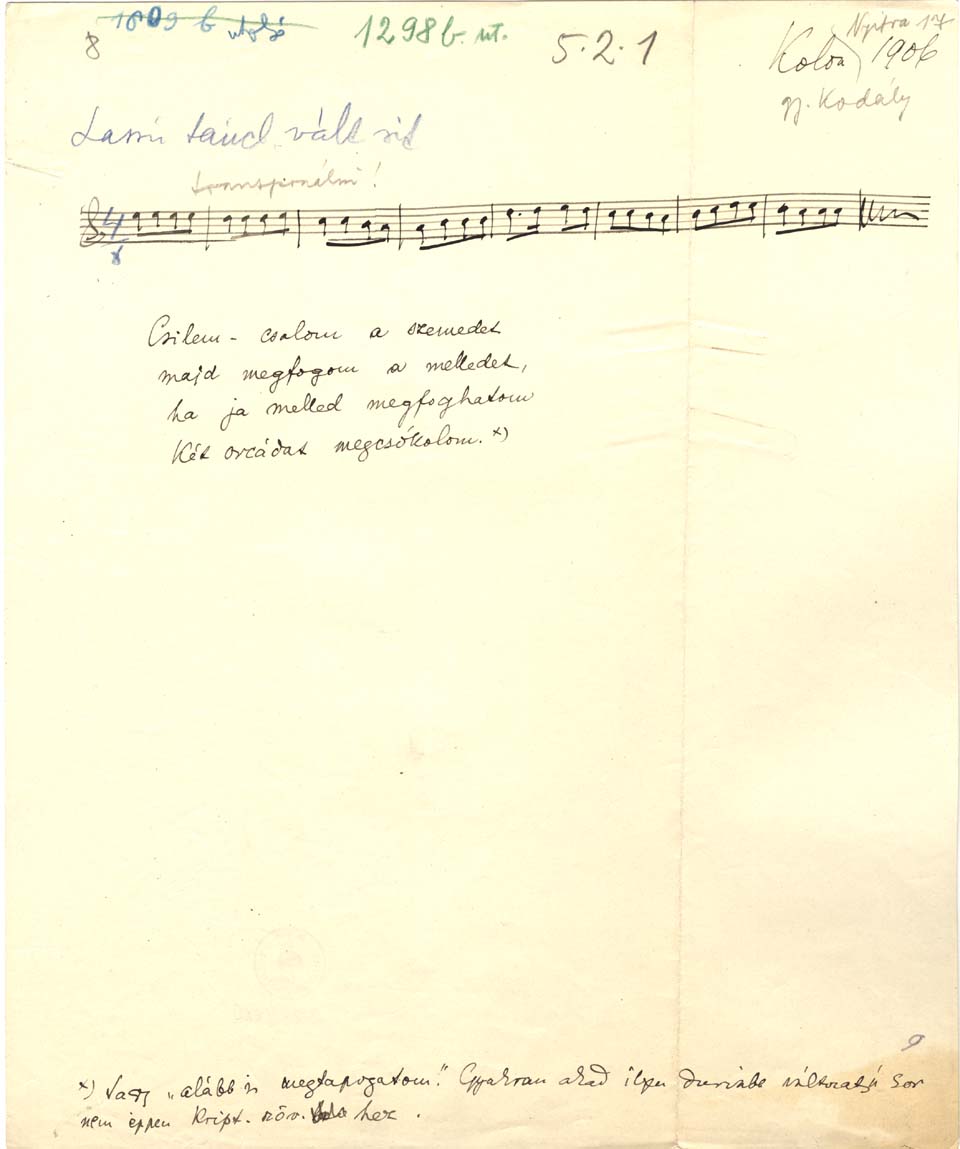 1809 b utolsó
1298 b. ut.
5.2.1
Nyitra 17
8
Kolon 1906
gy. Kodály
Lassú
transponálni!
4
x
Csilem - csalom a szemedet
majd megfogom a melledet,
ha ja melled megfoghatom
Két orcádat megcsókolom. x)
9
x) Vagy „alább is megtapogatom." Gyakran akad ilyen durvább változatú sor
nem éppen kript. szöv. hez.